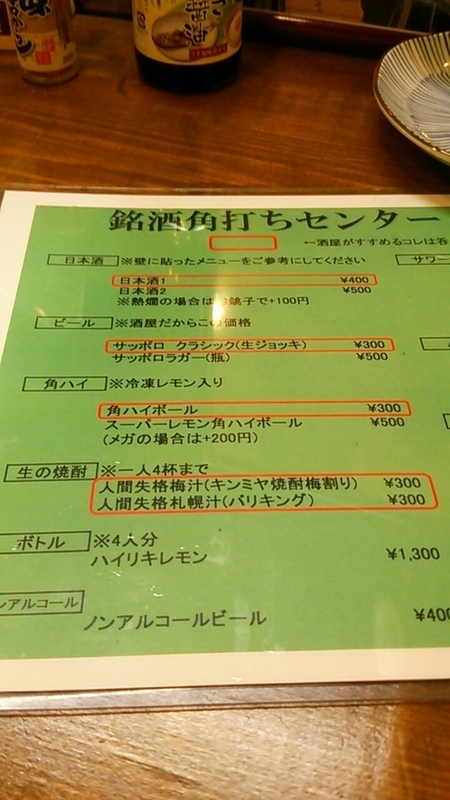 醤油
銘酒角打ちセンター
←酒屋がすすめるコレは呑
日本酒 ※壁に貼ったメニューをご参考にしてください
サワー
日本酒1 ¥400
日本酒2 ¥500
※熱燗の場合はお銚子で+100円
ビール ※酒屋だからこの価格
サッポロ クラシック(生ジョッキ) ¥300
サッポロラガー(瓶) ¥500
角ハイ ※冷凍レモン入り
角ハイボール ¥300
スーパーレモン角ハイボール ¥500
(メガの場合は+200円)
生の焼酎 ※一人4杯まで
人間失格梅汁(キンミヤ焼酎梅割り) ¥300
人間失格札幌汁(バリキング) ¥300
ボトル ※4人分
ハイリキレモン ¥1,300
ンアルコール
ノンアルコールビール ¥400